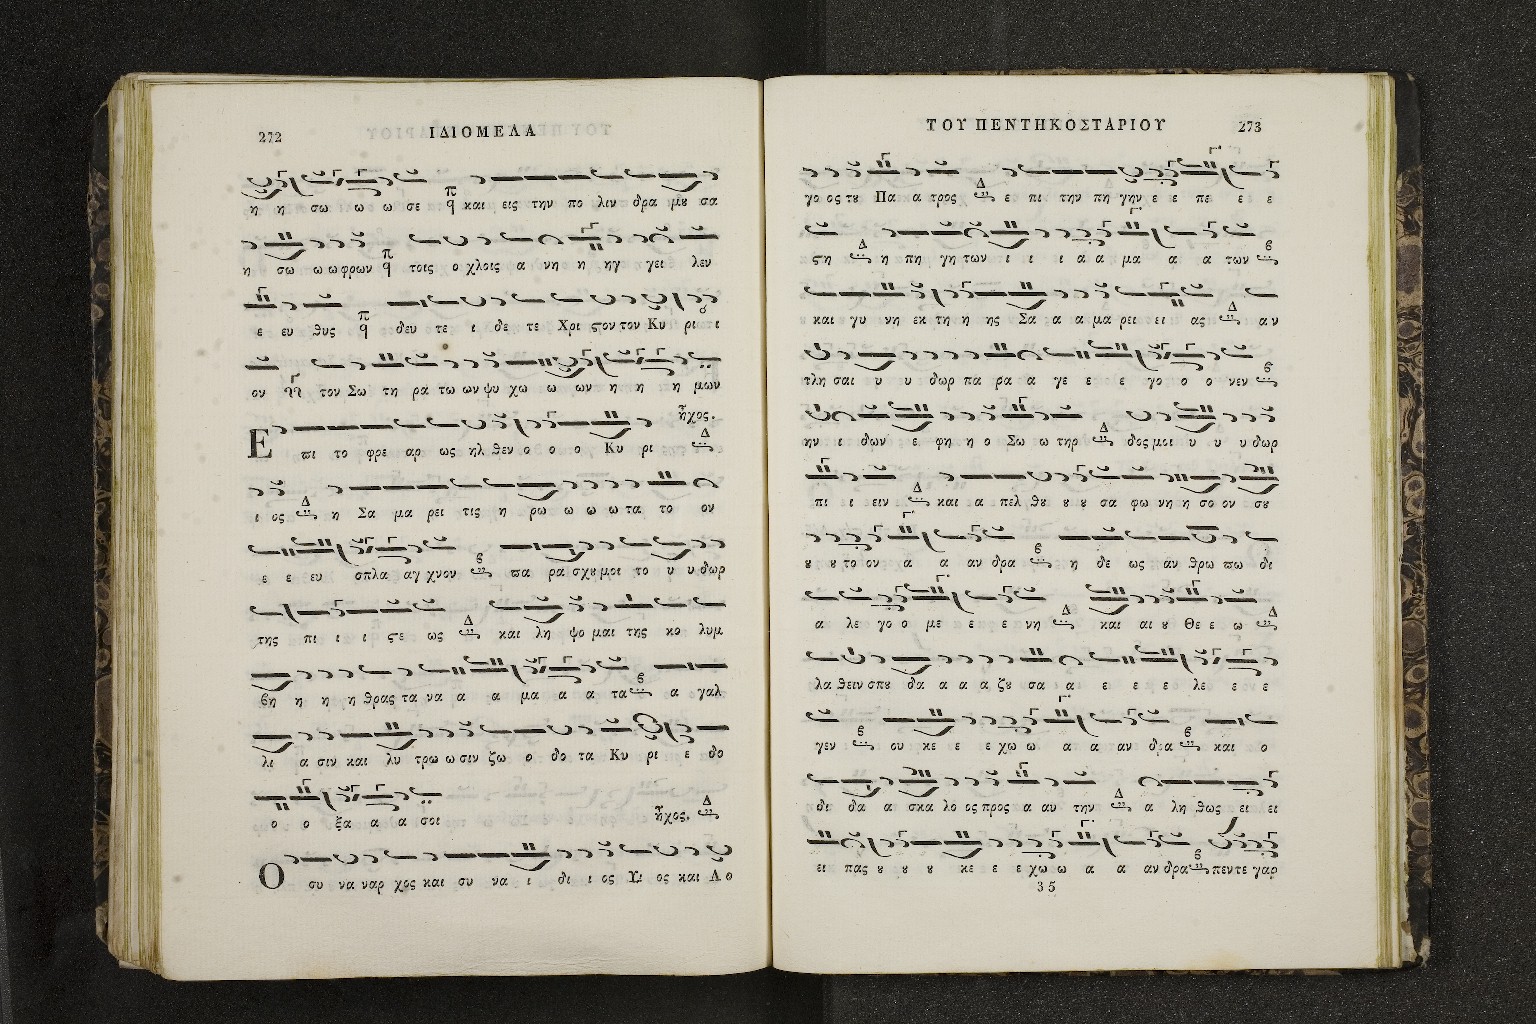 272
ΙΔΙΟΜΕΛΑ
η η σω ω ω σε και εις την πο λιν δρα μȣ σα
η σω ω ω φρων τοις ο χλοις α νη η ηγ γει λεν
ε ευ θυς δευ τε ι δε τε Χρι ϛον τον Κυ ρι ι
ον τον Σω τη ρα τω ων ψυ χω ω ων η η η μων
ἦχος.
Ε πι το φρε αρ ως ηλ θεν ο ο ο Κυ ρι
ι ος η Σα μα ρει τις η ρω ω ω ω τα το ον
ε ε ευ σπλα αγ χνον πα ρα σχȣ μοι το υ υ δωρ
της πι ι ι ϛε ως και λη ψο μαι της κο λυμ
βη η η η θρας τα να α α μα α α τα α γαλ
λι α σιν και λυ τρω ω σιν ζω ο δο τα Κυ ρι ε δο
ο ο ξα α α σοι ἦχος.
Ο συ να ναρ χος και συ να ι δι ι ος Υι ος και Λο
ΤΟΥ ΠΕΝΤΗΚΟΣΤΑΡΙΟΥ
273
γο ος τȣ Πα α τρος ε πι την πη γην ε ε πε ε ε
ϛη η πη γη των ι ι ι α α μα α α των
και γυ νη εκ τη η ης Σα α α μα ρει ει ας αν
τλη σαι υ υ δωρ πα ρα α γε ε ε γο ο ο νεν
ην ι δων ε φη η ο Σω ω τηρ δος μοι υ υ υ δωρ
πι ι ειν και α πελ θȣ ȣ ȣ σα φω νη η σο ον σȣ
ȣ ȣ το ον α α αν δρα η δε ως αν θρω πω δι
α λε γο ο με ε ε νη και αι ȣ Θε ε ω
λα θειν σπȣ δα α α α ζȣ σα α ε ε ε λε ε ε
γεν ου κε ε ε χω ω α α αν δρα και ο
δι δα α σκα λο ος προς α αυ την α λη θως ει ει
ει πας ȣ ȣ ȣ κε ε ε χω ω α α αν δρα πεν τε γαρ
35